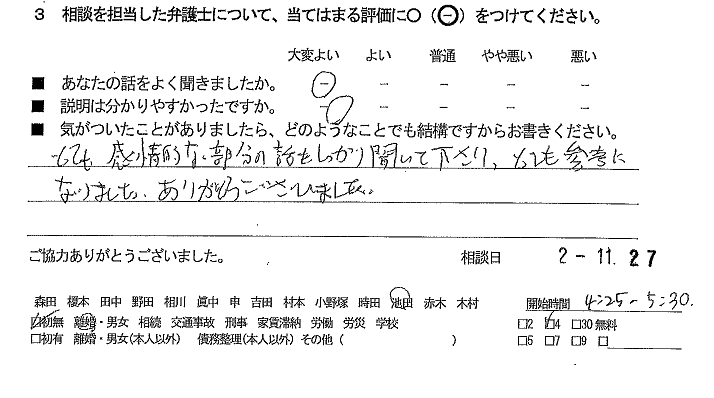 3 相談を担当した弁護士について、当てはまる評価に○(⊖)をつけてください。
大変よい よい 普通 やや悪い 悪い
■ あなたの話をよく聞きましたか。 － － － － －
■ 説明は分かりやすかったですか。 － － － － －
■ 気がついたことがありましたら、どのようなことでも結構ですからお書きください。
とても感情的な部分の話をしっかり聞いて下さり、とても参考に
なりました。ありがとうございました。
ご協力ありがとうございました。 相談日 2-11.27
森田 榎本 田中 野田 相川 眞中 申 吉田 村本 小野塚 時田 池田 赤木 木村 開始時間 4:25-5:30.
□初無 離婚・男女 相続 交通事故 刑事 家賃滞納 労働 労災 学校 □2 □4 □30無料
□初有 離婚・男女(本人以外) 債務整理(本人以外) その他( ) □5 □7 □9 □